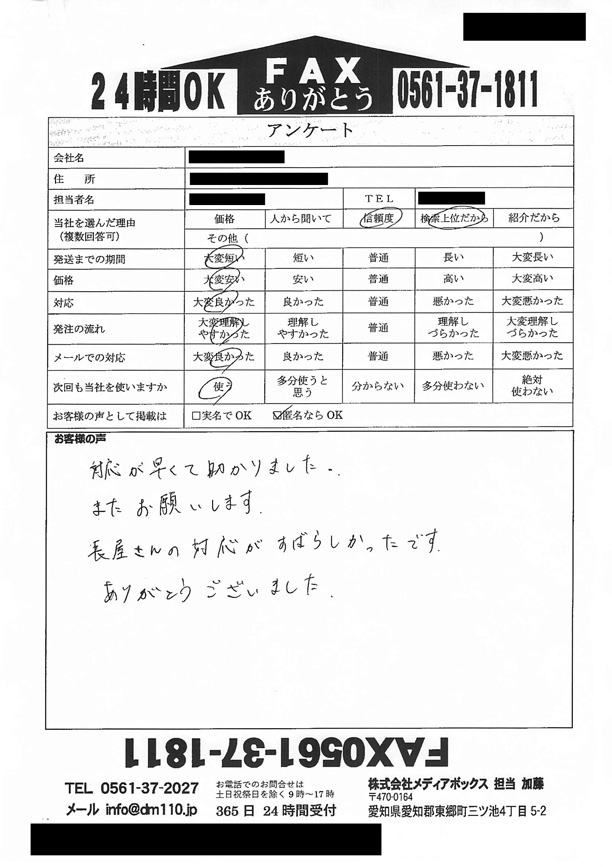 24時間OK FAX ありがとう 0561-37-1811
アンケート
会社名
住　所
担当者名 TEL
当社を選んだ理由（複数回答可） 価格 人から聞いて 信頼度 検索上位だから 紹介だから
その他（ ）
発送までの期間 大変短い 短い 普通 長い 大変長い
価格 大変安い 安い 普通 高い 大変高い
対応 大変良かった 良かった 普通 悪かった 大変悪かった
発注の流れ 大変理解しやすかった 理解しやすかった 普通 理解しづらかった 大変理解しづらかった
メールでの対応 大変良かった 良かった 普通 悪かった 大変悪かった
次回も当社を使いますか 使う 多分使うと思う 分からない 多分使わない 絶対使わない
お客様の声として掲載は □実名でOK ☑匿名ならOK
お客様の声
対応が早くて助かりました。
またお願いします.
長屋さんの対応がすばらしかったです.
ありがとうございました.
FAX0561-37-1811
TEL 0561-37-2027 お電話でのお問合せは 株式会社メディアボックス 担当 加藤
土日祝祭日を除く9時～17時 〒470-0164
メール info@dm110.jp 365日 24時間受付 愛知県愛知郡東郷町三ツ池4丁目5-2